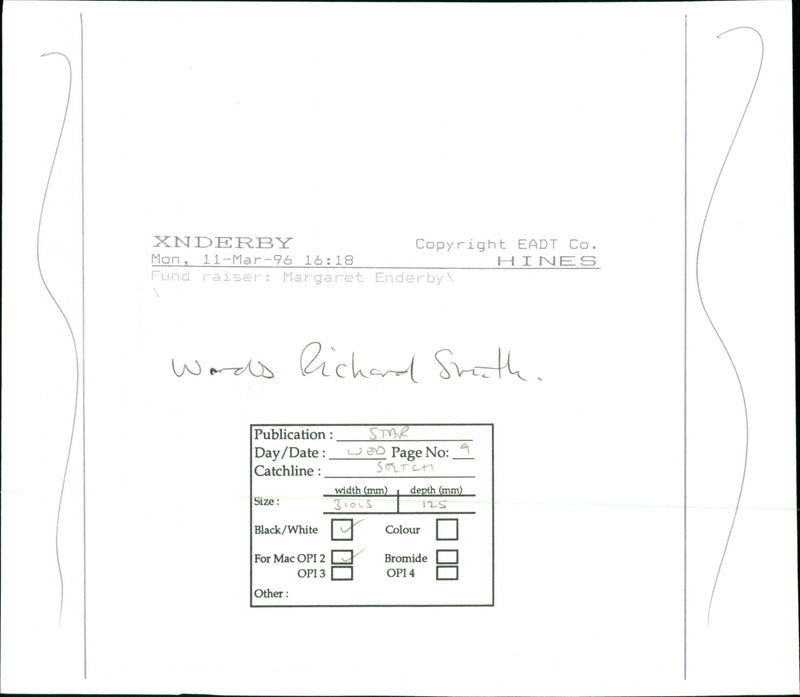 XNDERBY Copyright EADT Co.
Mon, 11-Mar-96 16:18 HINES
Fund raiser: Margaret Enderby\
\
Words Richard Smith.
Publication : STAR
Day/Date : WED Page No: 9
Catchline :
width (mm) depth (mm)
Size : 3cols 125
Black/White Colour
For Mac OPI 2 Bromide
OPI 3 OPI 4
Other :